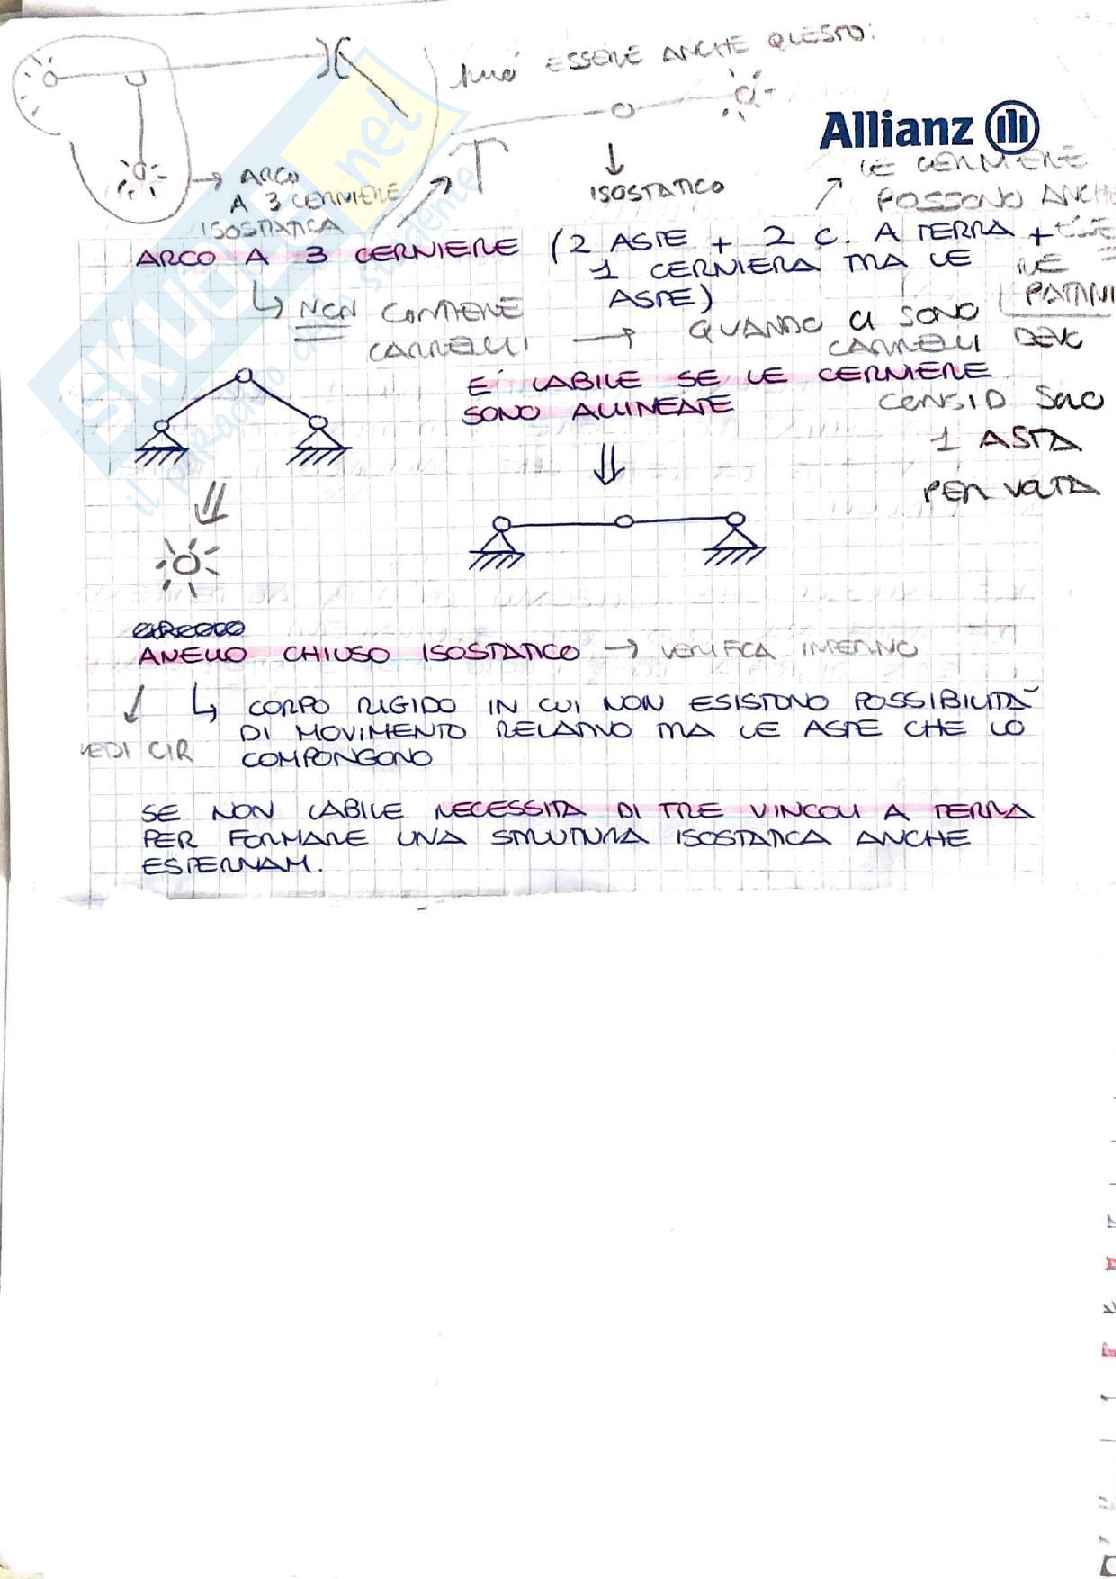 può ESSERE ANCHE QUESTO:
Allianz
→ ARCO
A 3 CERNIERE
ISOSTATICA
ISOSTATICO
LE CERNIERE
POSSONO ANCHE
ARCO A 3 CERNIERE (2 ASTE + 2 C. A TERRA +
1 CERNIERA TRA LE
ASTE)
PATTINI
NON CONTIENE
CARRELLI → QUANDO CI SONO
CARRELLI DEVO
CONSID SOLO
1 ASTA
PER VOLTA
E' LABILE SE LE CERNIERE
SONO ALLINEATE
SKUOLA.net
ANELLO CHIUSO ISOSTATICO → VERIFICA INTERNO
CORPO RIGIDO IN CUI NON ESISTONO POSSIBILITÀ
DI MOVIMENTO RELATIVO TRA LE ASTE CHE LO
COMPONGONO
VEDI CIR
SE NON LABILE NECESSITA DI TRE VINCOLI A TERRA
PER FORMARE UNA STRUTTURA ISOSTATICA ANCHE
ESTERNAM.